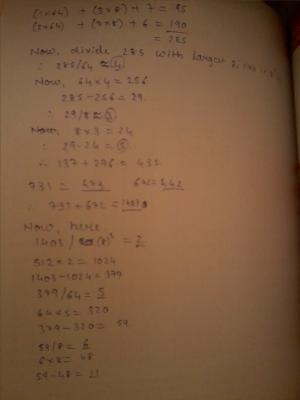 (1×64) + (3×8) + 7 = 95
(2×64) + (7×8) + 6 = 190
= 285
Now, divide 285 with larges
∴ 285/64 ≈ 4
Now, 64×4 = 256
285-256 = 29.
∴ 29/8 ≈ 3
Now 8×3 = 24
∴ 29-24 = 5
∴ 137 + 276 = 435.
731 = 473 672 = 442
∴ 731 + 672 = 1403
Now, here
1403 / (8)³ = 2
512 × 2 = 1024
1403-1024 = 379
379/64 = 5
64×5 = 320
379-320 = 59
59/8 = 6
6×8 = 48
59-48 = 11